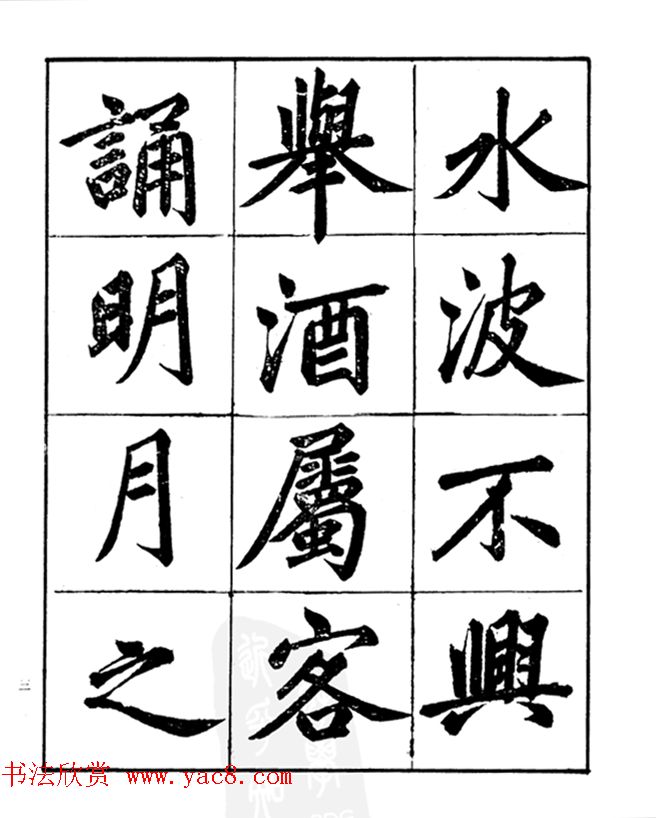 水波不興
舉酒屬客
誦明月之
三
书法欣赏 www.yac8.com